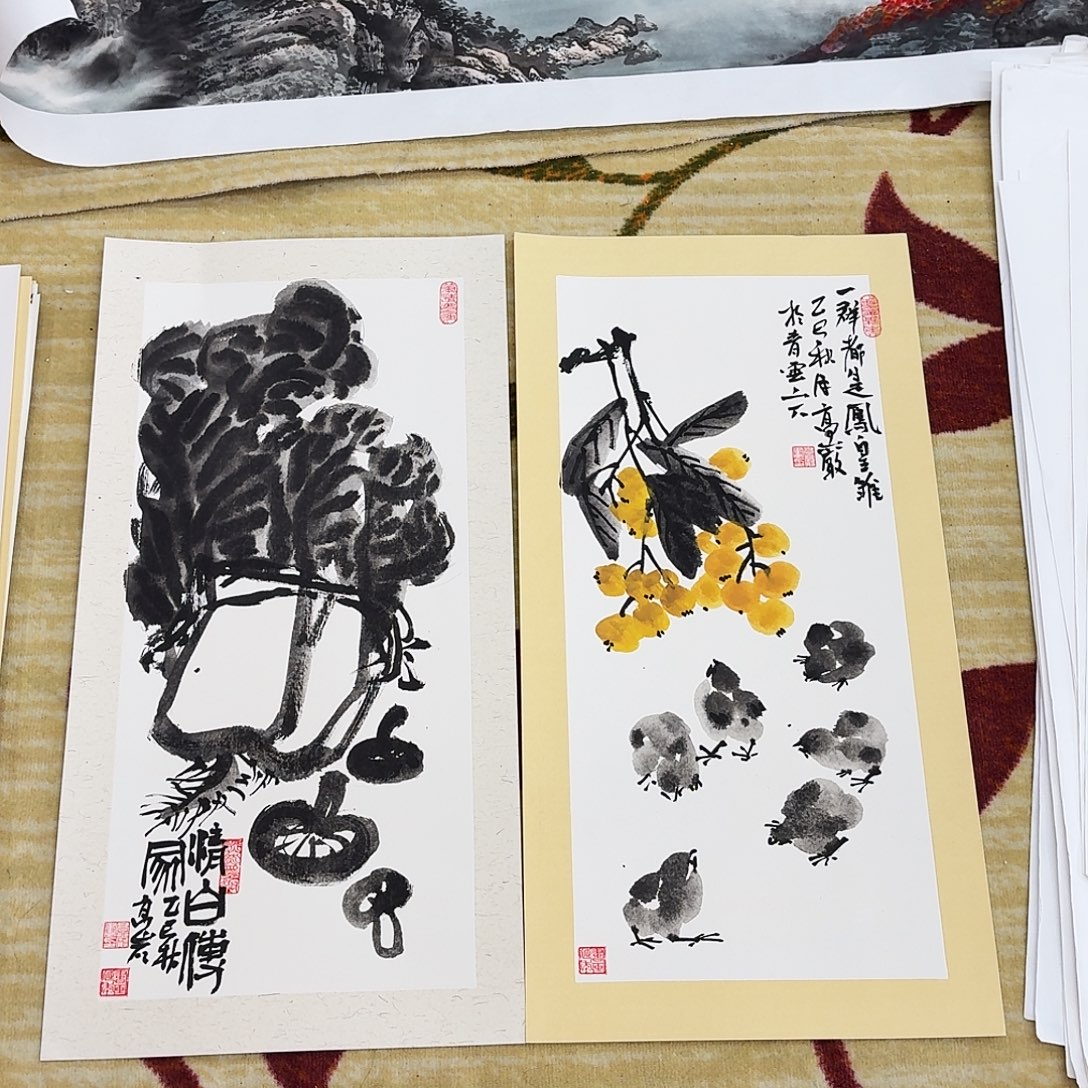 清白傳
家乙巳秋
高岩
一群都是鳳皇雏
乙巳秋月高巖
於青雲